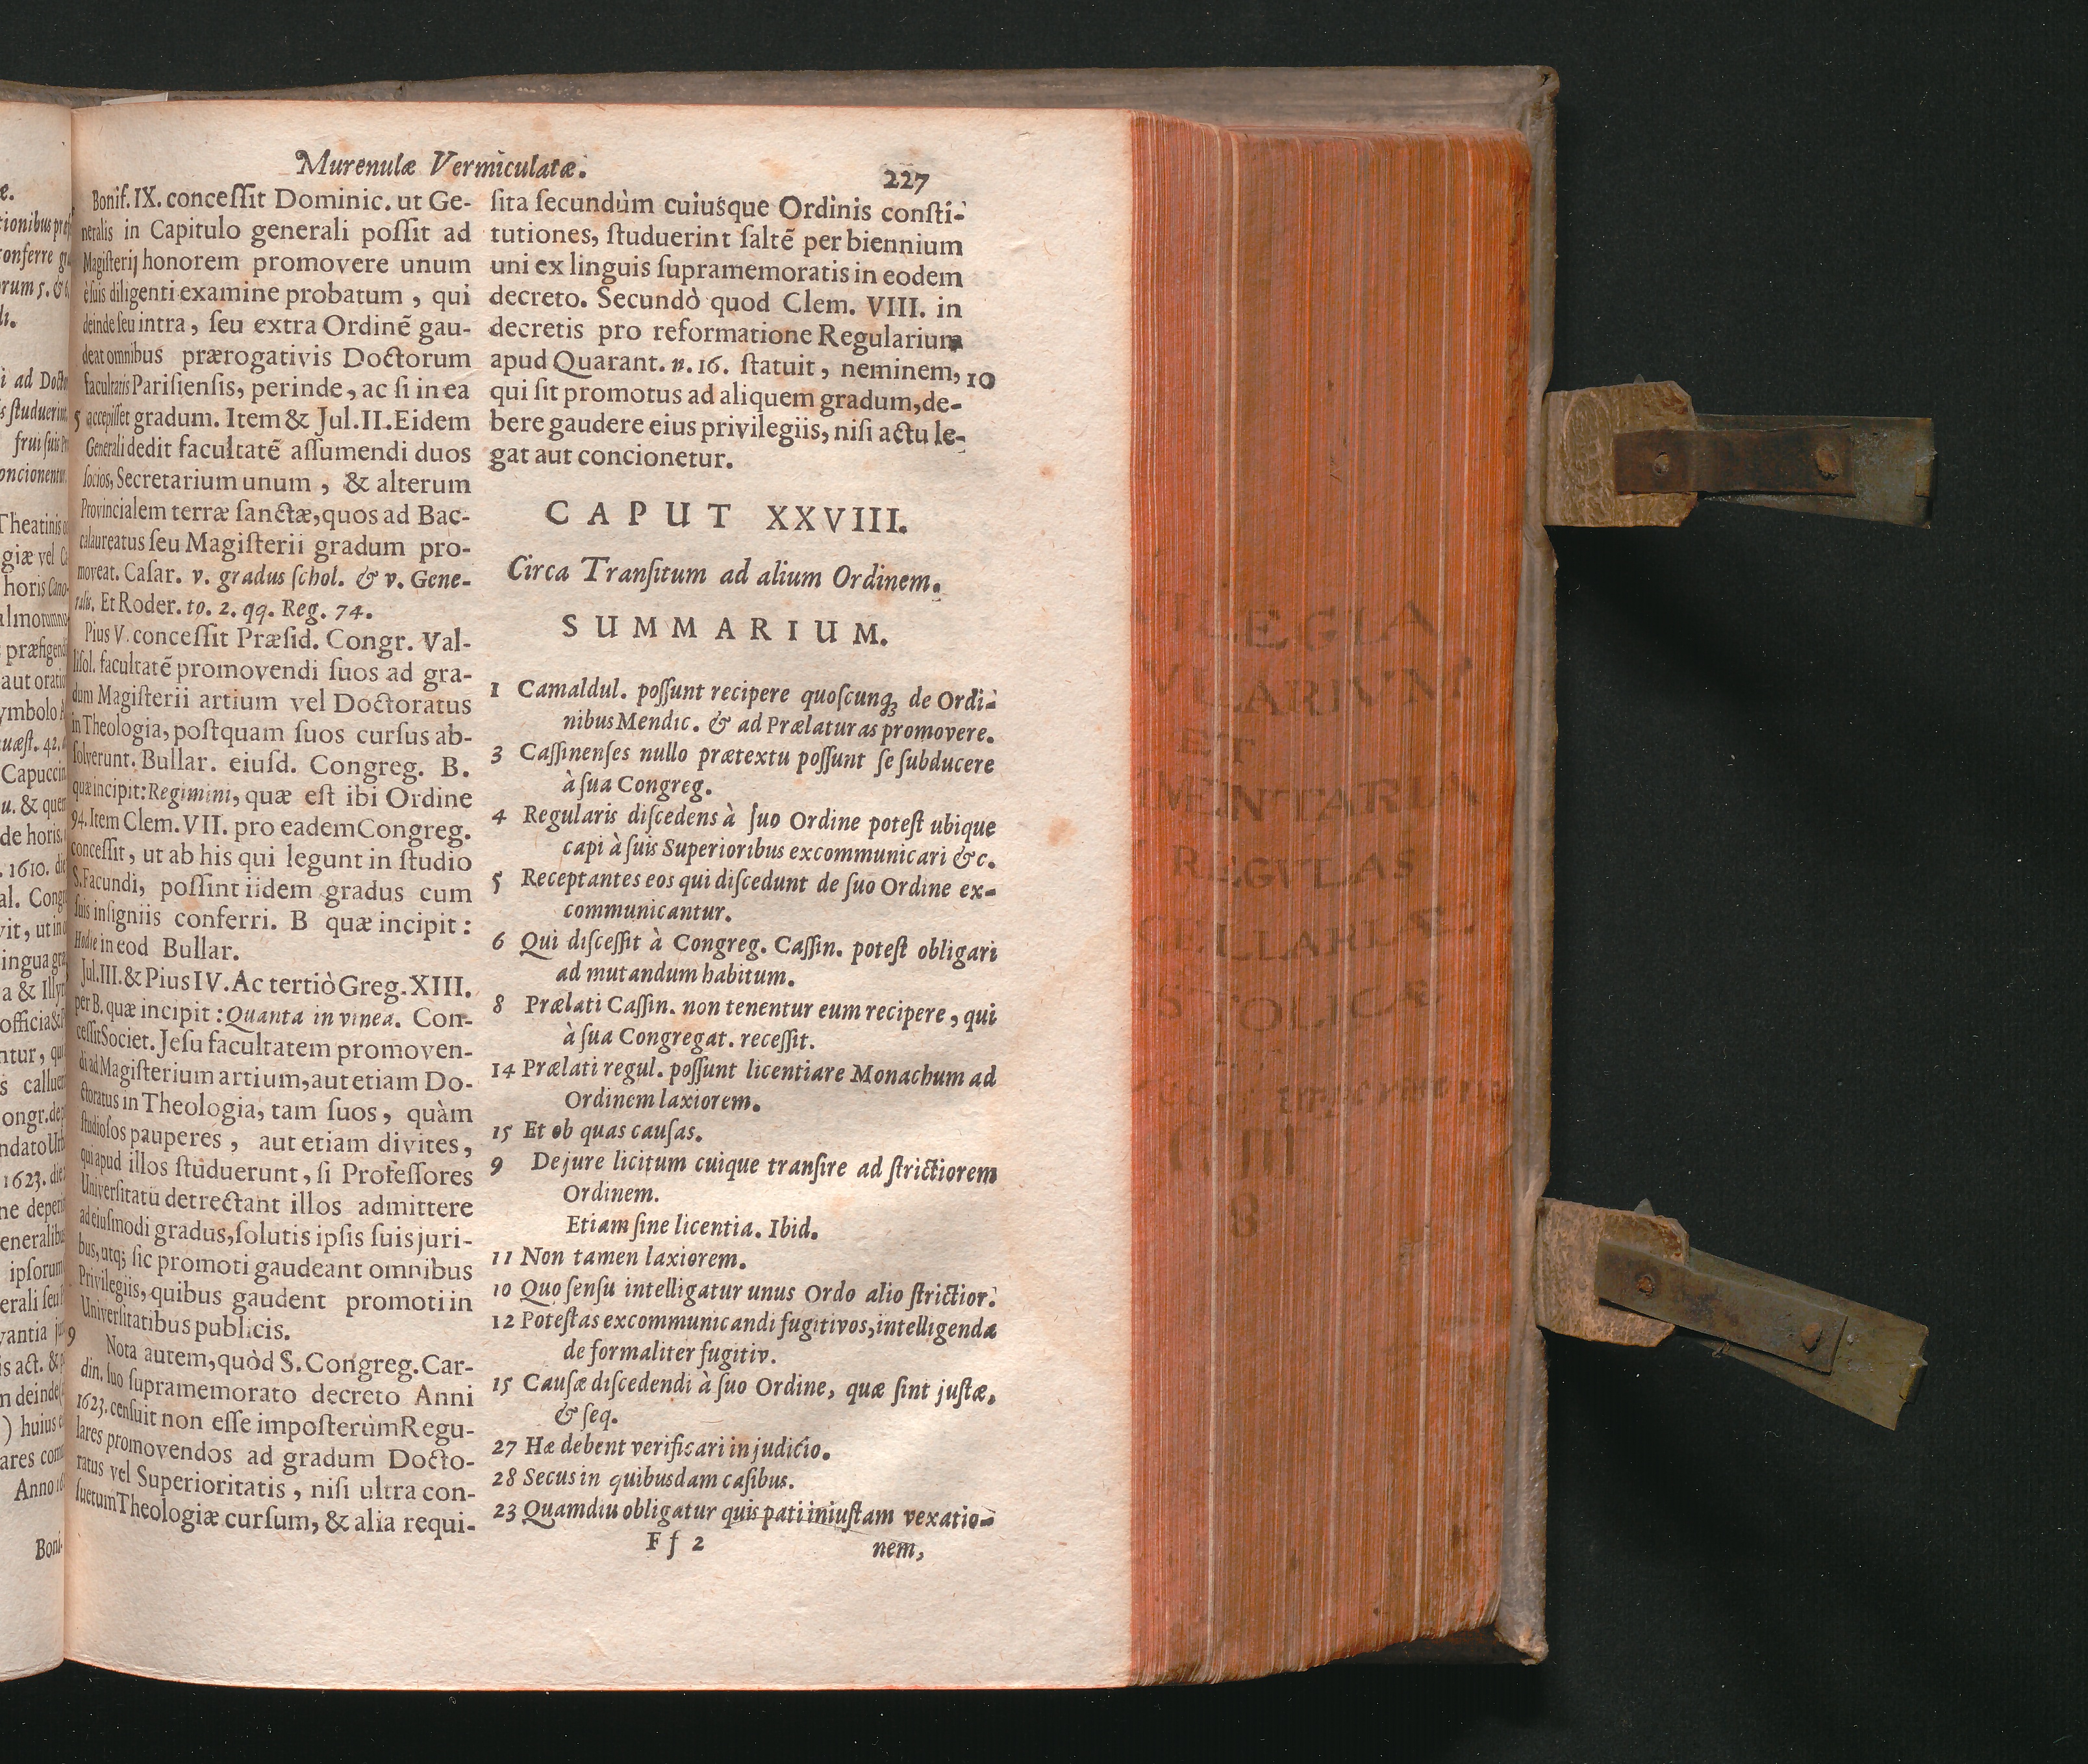 Murenulæ Vermiculatæ. 227
Bonif. IX. conceſſit Dominic. ut Ge-
neralis in Capitulo generali poſſit ad
Magiſterij honorem promovere unum
è ſuis diligenti examine probatum, qui
deinde ſeu intra, ſeu extra Ordinē gau-
deat omnibus prærogativis Doctorum
facultatis Pariſienſis, perinde, ac ſi in ea
5 accepiſſet gradum. Item & Jul. II. Eidem
Generali dedit facultatē aſſumendi duos
ſocios, Secretarium unum, & alterum
Provincialem terræ ſanctæ, quos ad Bac-
calaureatus ſeu Magiſterii gradum pro-
moveat. Caſar. v. gradus ſchol. & v. Gene-
ralis. Et Roder. to. 2. qq. Reg. 74.
Pius V. conceſſit Præſid. Congr. Val-
liſol. facultatē promovendi ſuos ad gra-
dum Magiſterii artium vel Doctoratus
in Theologia, poſtquam ſuos curſus ab-
ſolverunt. Bullar. eiuſd. Congreg. B.
quæ incipit: Regimini, quæ eſt ibi Ordine
94. Item Clem. VII. pro eadem Congreg.
conceſſit, ut ab his qui legunt in ſtudio
S. Facundi, poſſint iidem gradus cum
ſuis inſigniis conferri. B quæ incipit:
Hodie in eod Bullar.
Jul. III. & Pius IV. Ac tertiò Greg. XIII.
per B. quæ incipit: Quanta in vinea. Con-
ceſſit Societ. Jeſu facultatem promoven-
di ad Magiſterium artium, aut etiam Do-
ctoratus in Theologia, tam ſuos, quàm
ſtudioſos pauperes, aut etiam divites,
qui apud illos ſtuduerunt, ſi Profeſſores
Univerſitatū detrectant illos admittere
ad eiuſmodi gradus, ſolutis ipſis ſuis juri-
bus, utq; ſic promoti gaudeant omnibus
Privilegiis, quibus gaudent promoti in
Univerſitatibus publicis.
9 Nota autem, quòd S. Congreg. Car-
din. ſuo ſupramemorato decreto Anni
1623. cenſuit non eſſe impoſterùm Regu-
lares promovendos ad gradum Docto-
ratus vel Superioritatis, niſi ultra con-
ſuetum Theologiæ curſum, & alia requi-
ſita ſecundùm cuiuſque Ordinis conſti-
tutiones, ſtuduerint ſaltē per biennium
uni ex linguis ſupramemoratis in eodem
decreto. Secundò quod Clem. VIII. in
decretis pro reformatione Regularium
apud Quarant. n. 16. ſtatuit, neminem, 10
qui ſit promotus ad aliquem gradum, de-
bere gaudere eius privilegiis, niſi actu le-
gat aut concionetur.
CAPUT XXVIII.
Circa Tranſitum ad alium Ordinem.
SUMMARIUM.
1 Camaldul. poſſunt recipere quoſcunq; de Ordi-
nibus Mendic. & ad Prælaturas promovere.
3 Caſſinenſes nullo prætextu poſſunt ſe ſubducere
à ſua Congreg.
4 Regularis diſcedens à ſuo Ordine poteſt ubique
capi à ſuis Superioribus excommunicari &c.
5 Receptantes eos qui diſcedunt de ſuo Ordine ex-
communicantur.
6 Qui diſceſſit à Congreg. Caſſin. poteſt obligari
ad mutandum habitum.
8 Prælati Caſſin. non tenentur eum recipere, qui
à ſua Congregat. receſſit.
14 Prælati regul. poſſunt licentiare Monachum ad
Ordinem laxiorem.
15 Et ob quas cauſas.
9 De jure licitum cuique tranſire ad ſtrictiorem
Ordinem.
Etiam ſine licentia. Ibid.
11 Non tamen laxiorem.
10 Quo ſenſu intelligatur unus Ordo alio ſtrictior.
12 Poteſtas excommunicandi fugitivos, intelligenda
de formaliter fugitiv.
15 Cauſæ diſcedendi à ſuo Ordine, quæ ſint juſtæ,
& ſeq.
27 Hæ debent verificari in judicio.
28 Secus in quibusdam caſibus.
23 Quamdiu obligatur quis pati iniuſtam vexatio-
Ff 2 nem,
ET
REGVLAS
8